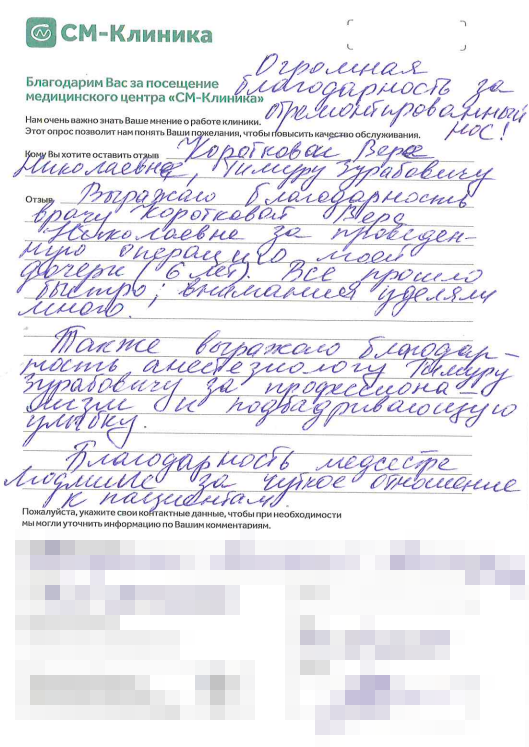 СМ-Клиника
Огромная
Благодарим Вас за посещение
благодарность за
медицинского центра «СМ-Клиника»
отремонтированный
нос!
Нам очень важно знать Ваше мнение о работе клиники.
Этот опрос позволит нам понять Ваши пожелания, чтобы повысить качество обслуживания.
Кому Вы хотите оставить отзыв Коротковой Вере
Николаевне, Тимуру Зурабовичу
Отзыв Выражаю благодарность
врачу Коротковой Вере
Николаевне за проведен-
ную операцию моей
дочери (6 лет). Все прошло
быстро; внимания уделяли
много!
Также выражаю благодар-
ность анестезиологу Тимуру
Зурабовичу за профессиона-
лизм и подбадривающую
улыбку.
Благодарность медсестре
Людмиле за чуткое отношение
к пациентам.
Пожалуйста, укажите свои контактные данные, чтобы при необходимости
мы могли уточнить информацию по Вашим комментариям.